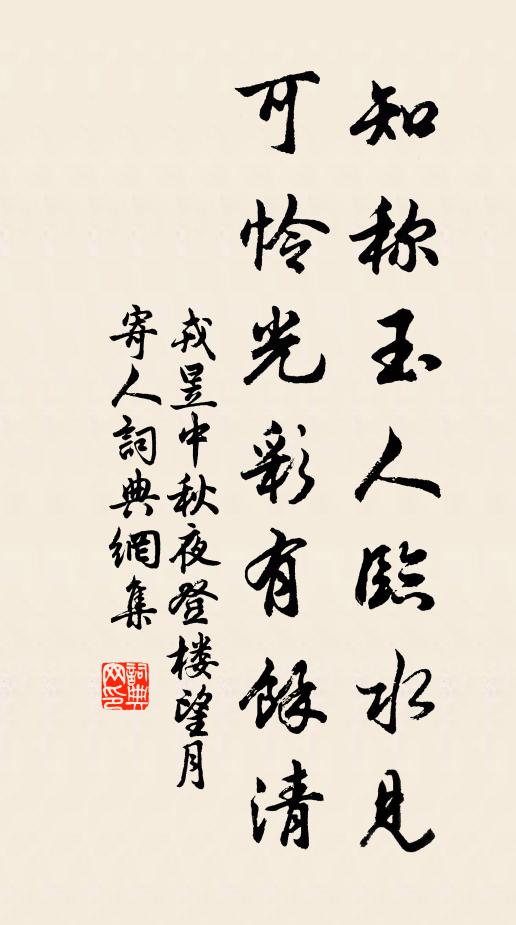 知称玉人臨水見
可怜光彩有餘清
戎昱中秋夜登楼望月
寄人詞典網集
詞典网印